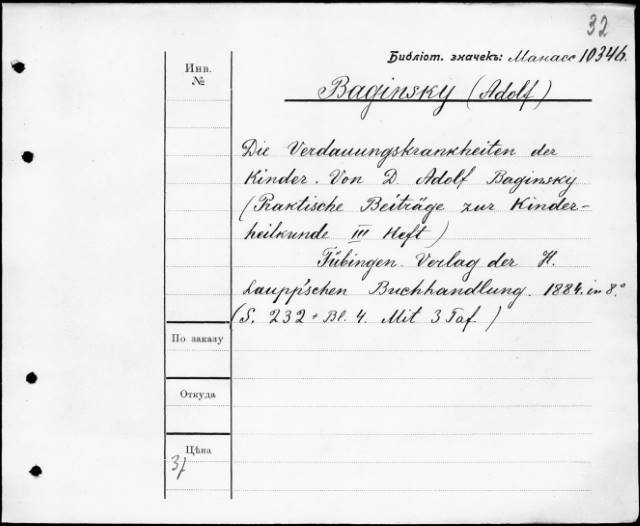 32
Библіот. значекъ: Манасс 10346.
Инв.
№
Baginsky (Adolf)
Die Verdauungskrankheiten der
Kinder. Von D. Adolf Baginsky
(Praktische Beiträge zur Kinder-
heilkunde III Heft)
Tübingen. Verlag der H.
Laupp'schen Buchhandlung. 1884. in 8.º
(S. 232 + Bl. 4. Mit 3 Taf.)
По заказу
Откуда
Цѣна